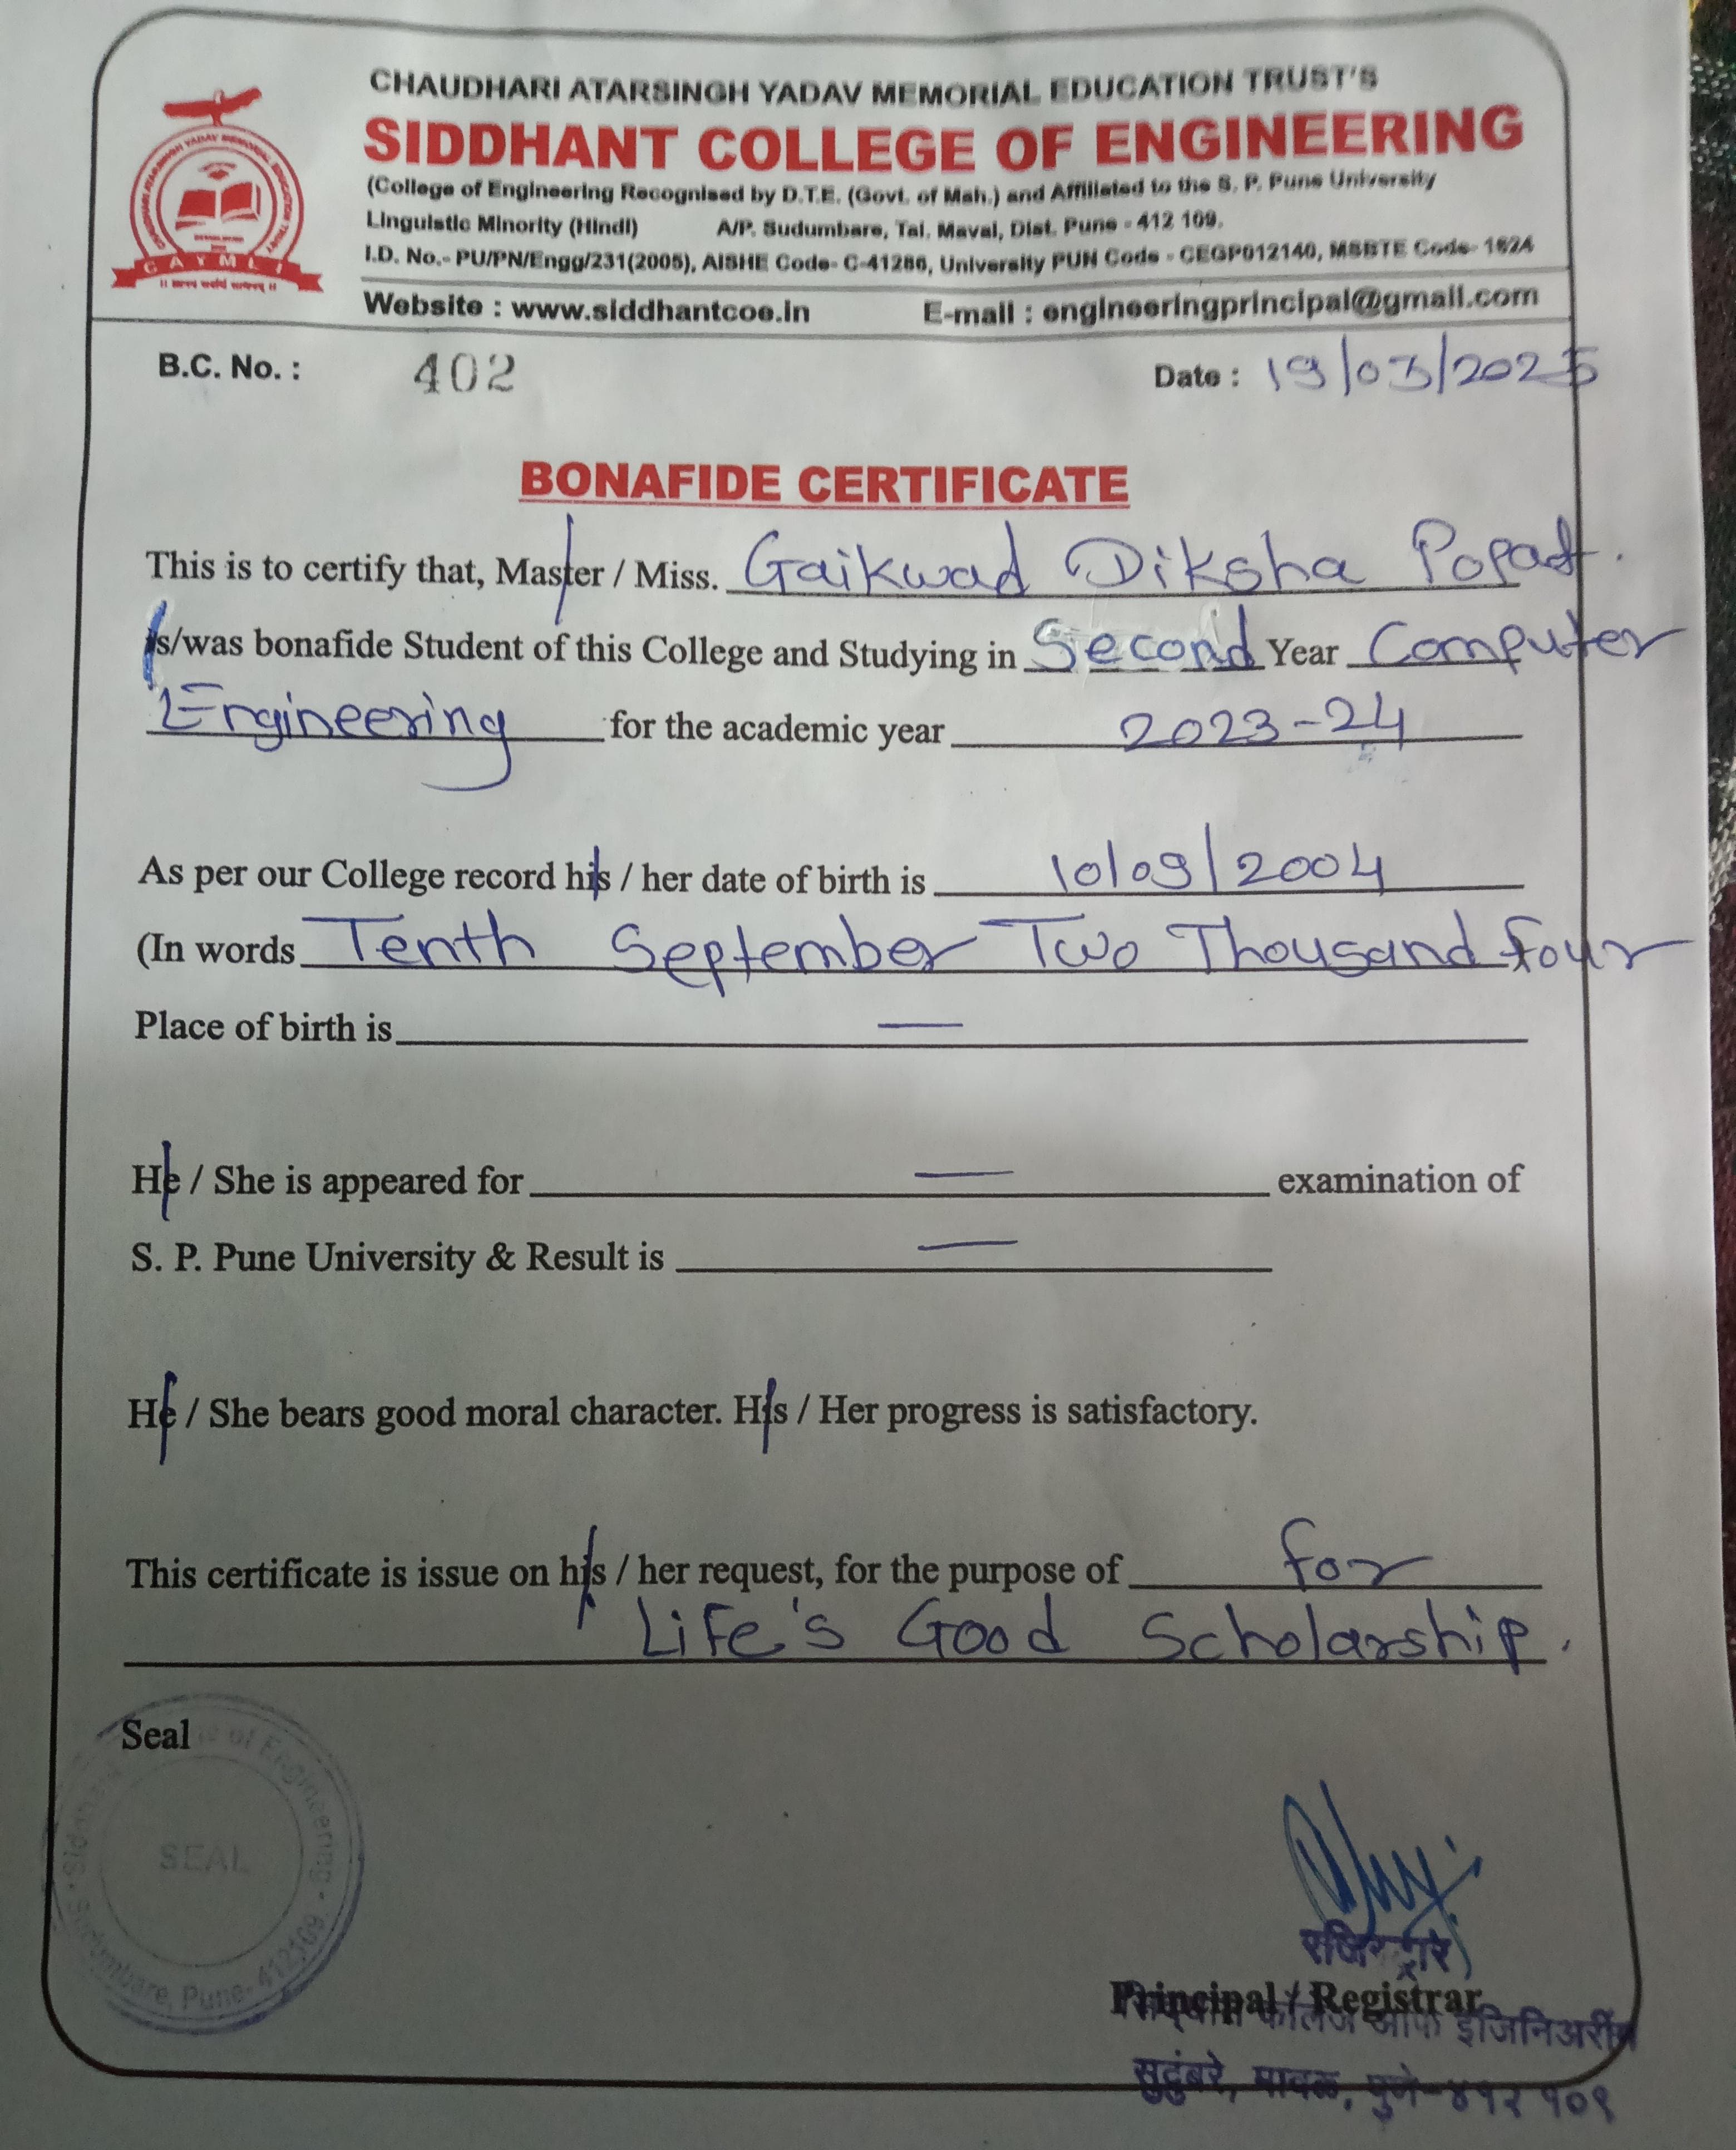 CHAUDHARI ATARSINGH YADAV MEMORIAL EDUCATION TRUST'S
SIDDHANT COLLEGE OF ENGINEERING
(College of Engineering Recognised by D.T.E. (Govt. of Mah.) and Affiliated to the S. P. Pune University
Linguistic Minority (Hindi) A/P. Sudumbare, Tal. Maval, Dist. Pune - 412 109.
I.D. No.- PU/PN/Engg/231(2005), AISHE Code- C-41286, University PUN Code - CEGP012140, MSBTE Code- 1624
CAYMET
Website : www.siddhantcoe.in E-mail : engineeringprincipal@gmail.com
B.C. No. : 402 Date : 19/03/2025
BONAFIDE CERTIFICATE
This is to certify that, Master / Miss. Gaikwad Diksha Popat.
is/was bonafide Student of this College and Studying in Second Year Computer
Engineering for the academic year 2023-24
As per our College record his / her date of birth is 10/09/2004
(In words Tenth September Two Thousand four
Place of birth is —
He / She is appeared for — examination of
S. P. Pune University & Result is —
He / She bears good moral character. His / Her progress is satisfactory.
This certificate is issue on his / her request, for the purpose of for
Life's Good Scholarship.
Seal
of Engineering
SEAL
Sudumbare, Pune- 412109
रजिस्ट्रार
Principal / Registrar
कॉलेज ऑफ इंजिनिअरींग
सुदुंबरे, मावळ, पुणे-४१२ १०९